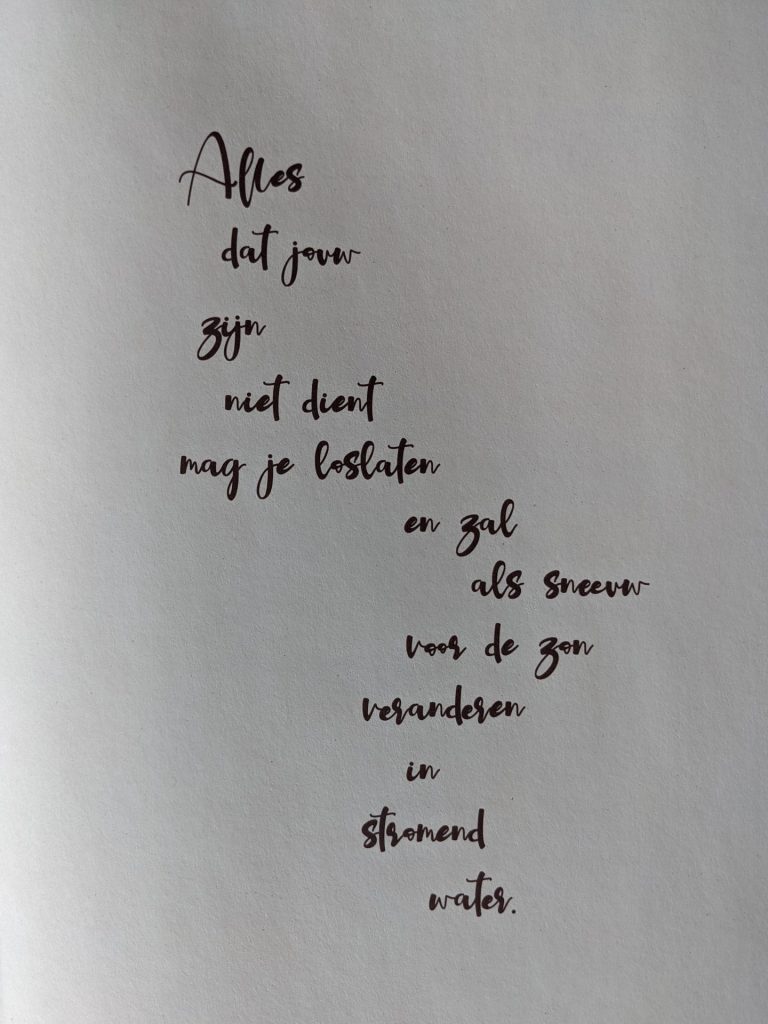 Alles
dat jouw
zijn
niet dient
mag je loslaten
en zal
als sneeuw
voor de zon
veranderen
in
stromend
water.